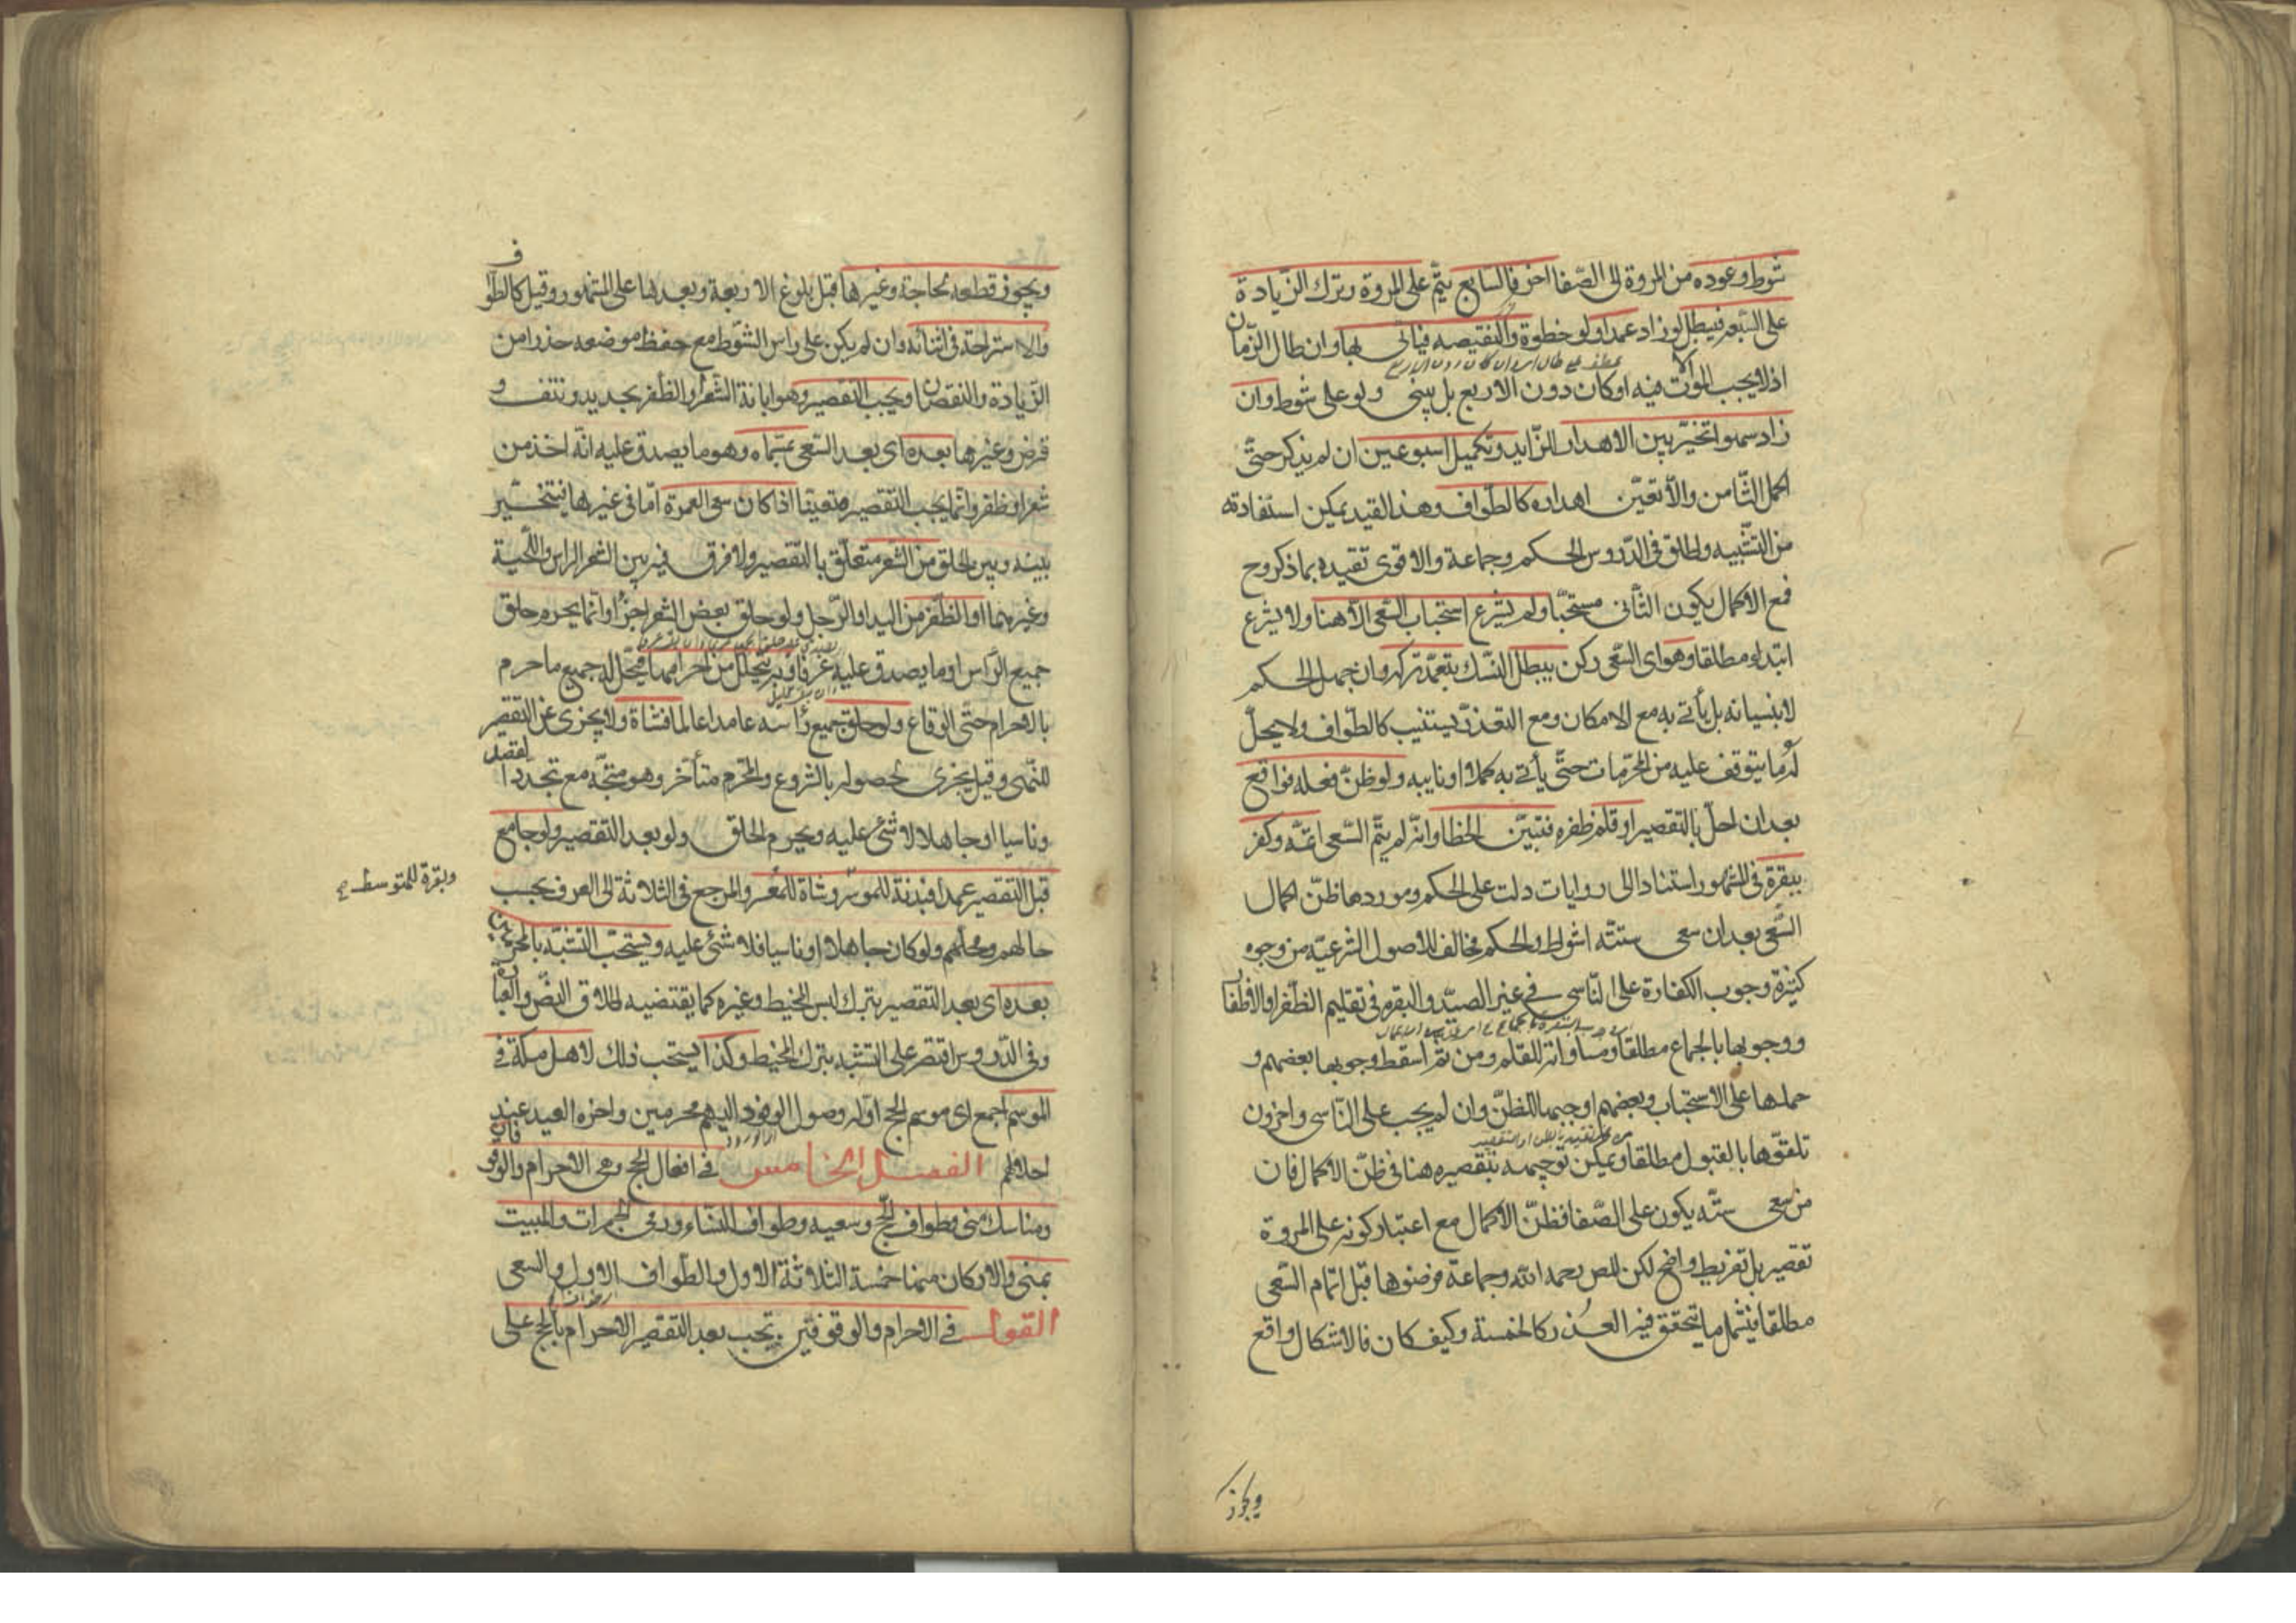 شوط وعوده من المروة الى الصّفا اخر فالسّابع يتمّ على المروة وترك الزّيادة
على السّبعة فيبطل لو زاد عمدا ولو خطوة والنقيصه فيأتى بها وان طال الزّمان
اذ لا يجب الموالات فيه او كان دون الاربع بل يبنى ولو على شوط وان
زاد سهوا تخيّر بين الاهدار للزّايد وتكميل اسبوعين ان لم يذكر حتّى
اكمل الثّامن والّا تعيّن اهداره كالطّواف وهذا القيد يمكن استفادته
من التشبيه واطلق فى الدّروس الحكم وجماعة والاقوى تقييده بما ذكر وح
فمع الاكمال يكون الثّانى مستحبّا ولم يشرع استحباب السّعى الّا هنا ولا يشرع
ابتداء مطلقا وهو اى السّعى ركن يبطل النّسك بتعمّد تركه وان جهل الحكم
لا بنسيانه بل يأتى به مع الامكان ومع التعذّر يستنيب كالطّواف ولا يحلّ
له ما يتوقف عليه من المحرّمات حتّى يأتى به كملا او نايبه ولو ظنّ فعله فواقع
بعد ان احلّ بالتقصير او قلم ظفره فتبيّن الخطا وانّه لم يتمّ السّعى اتمّه وكفر
ببقرة فى المشهور استنادا الى روايات دلت على الحكم وموردها ظنّ اكمال
السّعى بعد ان سعى ستّة اشواط والحكم مخالف للاصول الشرعيّه من وجوه
كثيرة وجوب الكفارة على النّاسى فى غير الصيّد والبقره فى تقليم الظّفر او الاظفار
ووجوبها بالجماع مطلقا ومساواته للقلم ومن ثمّ اسقط وجوبها بعضهم و
حملها على الاستحباب وبعضهم اوجبها للظنّ وان لم يجب على النّاسى واخرون
تلقّوها بالقبول مطلقا ويمكن توجيهه بتقصيره هنا فى ظنّ الاكمال فان
من سعى ستّه يكون على الصّفا فظنّ الاكمال مع اعتبار كونه على المروة
تقصير بل تفريط واضح لكن المص رحمه الله وجماعة فرضوها قبل اتمام السّعى
مطلقا فيشمل ما يتحقق فيه العذر كالخمسة وكيف كان فالاشكال واقع
ويجوز
ويجوز قطعه لحاجة وغيرها قبل بلوغ الاربعة وبعدها على المشهور وقيل كالطواف
والاستراحة فى اثنائه وان لم يكن على راس الشّوط مع حفظ موضعه حذرا من
الزّيادة والنقصان ويجب التقصير وهو ابانة الشّعر او الظّفر بحديد ونتف و
قرض وغيرها بعده اى بعد السّعى بمسمّاه وهو ما يصدق عليه انّه اخذ من
شعر او ظفر وانّما يجب التقصير متعينا اذا كان سعى العمرة امّا فى غيرها فيتخيّر
بينه وبين الحلق من الشّعر متعلّق بالتّقصير ولا فرق فيه بين الشعر الراس واللّحية
وغيرهما او الظّفر من اليد او الرّجل ولو حلق بعض الشعر اجزأ وانّما يحرم حلق
جميع الرّاس او ما يصدق عليه عرفا وبه يتحلل من احرامها فيحلّ له جميع ما حرم
بالاحرام حتّى الوقاع ولو حلق جميع رأسه عامدا عالما فشاة ولا يجزى عن التقصير
للنّهى وقيل يجزى لحصوله بالشروع والمحرّم متأخر وهو متجّه مع تجدد القصد
وناسيا او جاهلا لا شئ عليه ويحرم الحلق ولو بعد التقصير ولو جامع
قبل التقصير عمدا فبدنة للموسر وشاة للمعسر والمرجع فى الثلاثة الى العرف بحسب
وبقرة للمتوسط
حالهم ومحلّهم ولو كان جاهلا او ناسيا فلا شئ عليه ويستحبّ التشبّه بالمحرمين
بعده اى بعد التقصير بترك لبس المخيط وغيره كما يقتضيه اطلاق النصّ والعبارة
وفى الدّروس اقتصر على التشبه بترك المخيط وكذا يستحب ذلك لاهل مكة فى
الموسم اجمع اى موسم الحج اوّله وصول الوفود اليهم محرمين واخره العيد عند
احلالهم الفصل الخامس فى افعال الحج وهى الاحرام والوقوفان
ومناسك منى وطواف الحجّ وسعيه وطواف النساء ورمى الجمرات والمبيت
بمنى والاركان منها خمسة الثلاثة الاول والطّواف الاول والسعى
القول فى الاحرام والوقوفين يجب بعد التقصير الاحرام بالحج على